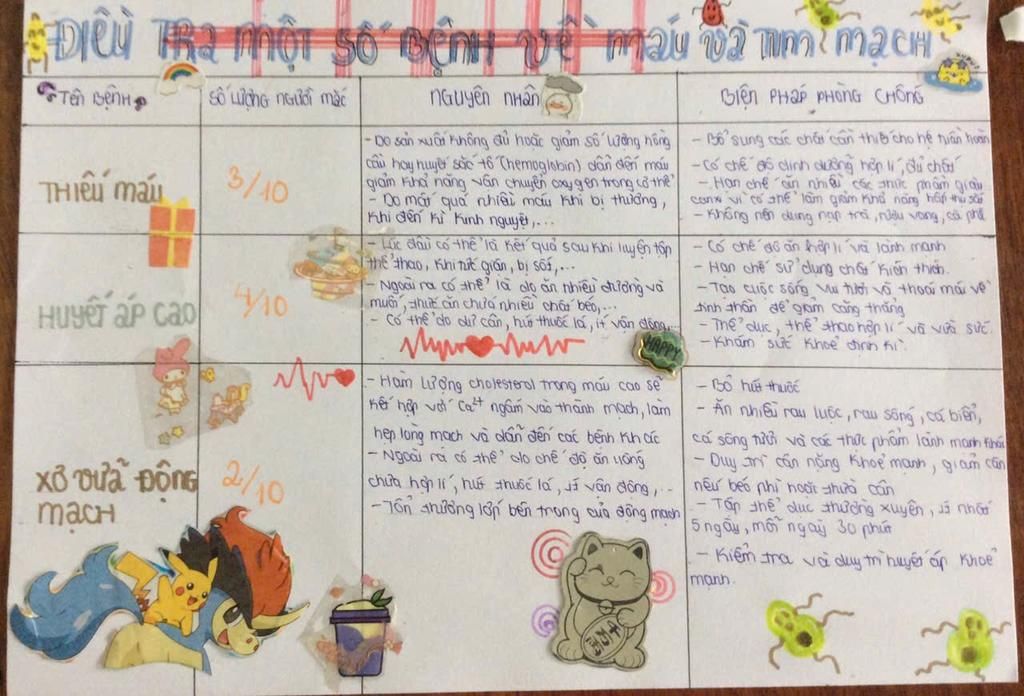 ĐIỀU TRA MỘT SỐ BỆNH VỀ MÁU VÀ TIM MẠCH
TÊN BỆNH
SỐ LƯỢNG NGƯỜI MẮC
NGUYÊN NHÂN
BIỆN PHÁP PHÒNG CHỐNG
THIẾU MÁU
3/10
- Do sản xuất không đủ hoặc giảm số lượng hồng
cầu hay huyết sắc tố (hemoglobin) dẫn đến máu
giảm khả năng vận chuyển oxygen trong cơ thể
- Do mất quá nhiều máu khi bị thương,
khi đến kì kinh nguyệt,...
- Bổ sung các chất cần thiết cho hệ tuần hoàn
- Có chế độ dinh dưỡng hợp lí, đủ chất
- Hạn chế ăn nhiều các thực phẩm giàu
canxi vì có thể làm giảm khả năng hấp thụ sắt
- Không nên dung nạp trà, rượu vang, cà phê
HUYẾT ÁP CAO
4/10
- Lúc đầu có thể là kết quả sau khi luyện tập
thể thao, khi tức giận, bị sốt,...
- Ngoài ra có thể là do ăn nhiều đường và
muối, thức ăn chứa nhiều chất béo,...
- Có thể do dư cân, hút thuốc lá, ít vận động,...
HAPPY
- Có chế độ ăn hợp lí và lành mạnh
- Hạn chế sử dụng chất kích thích.
- Tạo cuộc sống vui tươi và thoải mái về
tinh thần để giảm căng thẳng
- Thể dục, thể thao hợp lí và vừa sức.
- Khám sức khoẻ định kì.
XƠ VỮA ĐỘNG
MẠCH
2/10
- Hàm lượng cholesterol trong máu cao sẽ
kết hợp với Ca²⁺ ngấm vào thành mạch, làm
hẹp lòng mạch và dẫn đến các bệnh khác
- Ngoài ra có thể do chế độ ăn uống
chưa hợp lí, hút thuốc lá, ít vận động,...
- Tổn thương lớp bên trong của động mạch
- Bỏ hút thuốc
- Ăn nhiều rau luộc, rau sống, cá biển,
cá sông tươi và các thực phẩm lành mạnh khác
- Duy trì cân nặng khoẻ mạnh, giảm cân
nếu béo phì hoặc thừa cân
- Tập thể dục thường xuyên, ít nhất
5 ngày, mỗi ngày 30 phút
- Kiểm tra và duy trì huyết áp khoẻ
mạnh.